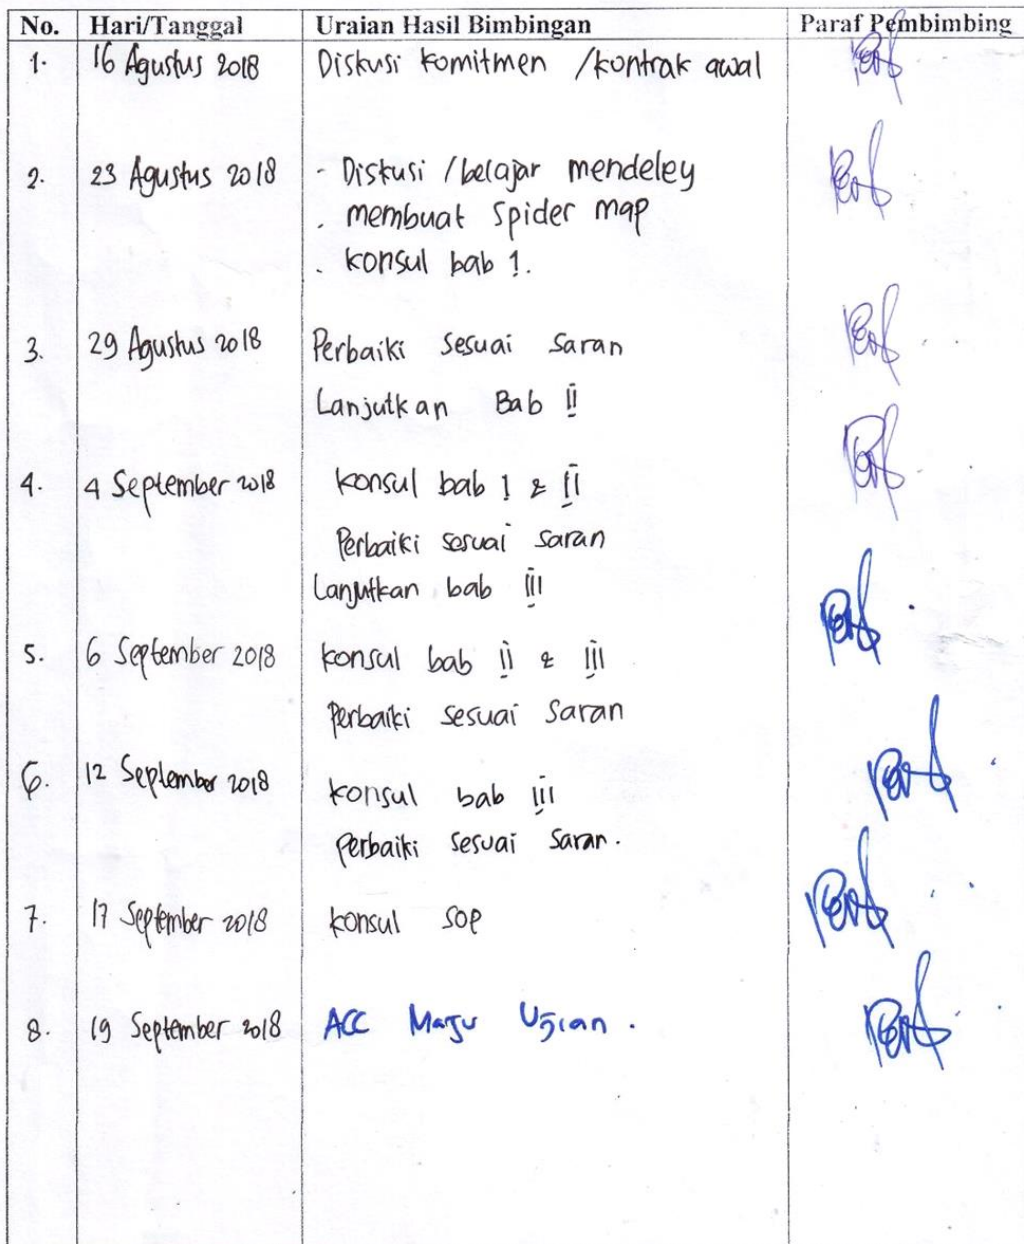 No. Hari/Tanggal Uraian Hasil Bimbingan Paraf Pembimbing
1. 16 Agustus 2018 Diskusi komitmen /kontrak awal
2. 23 Agustus 2018 - Diskusi /belajar mendeley
. membuat spider map
. konsul bab 1.
3. 29 Agustus 2018 Perbaiki sesuai saran
Lanjutkan Bab II
4. 4 September 2018 konsul bab I & II
Perbaiki sesuai saran
Lanjutkan bab III
5. 6 September 2018 konsul bab II & III
Perbaiki sesuai saran
6. 12 September 2018 konsul bab III
Perbaiki sesuai saran.
7. 17 September 2018 konsul SOP
8. 19 September 2018 ACC Maju Ujian.